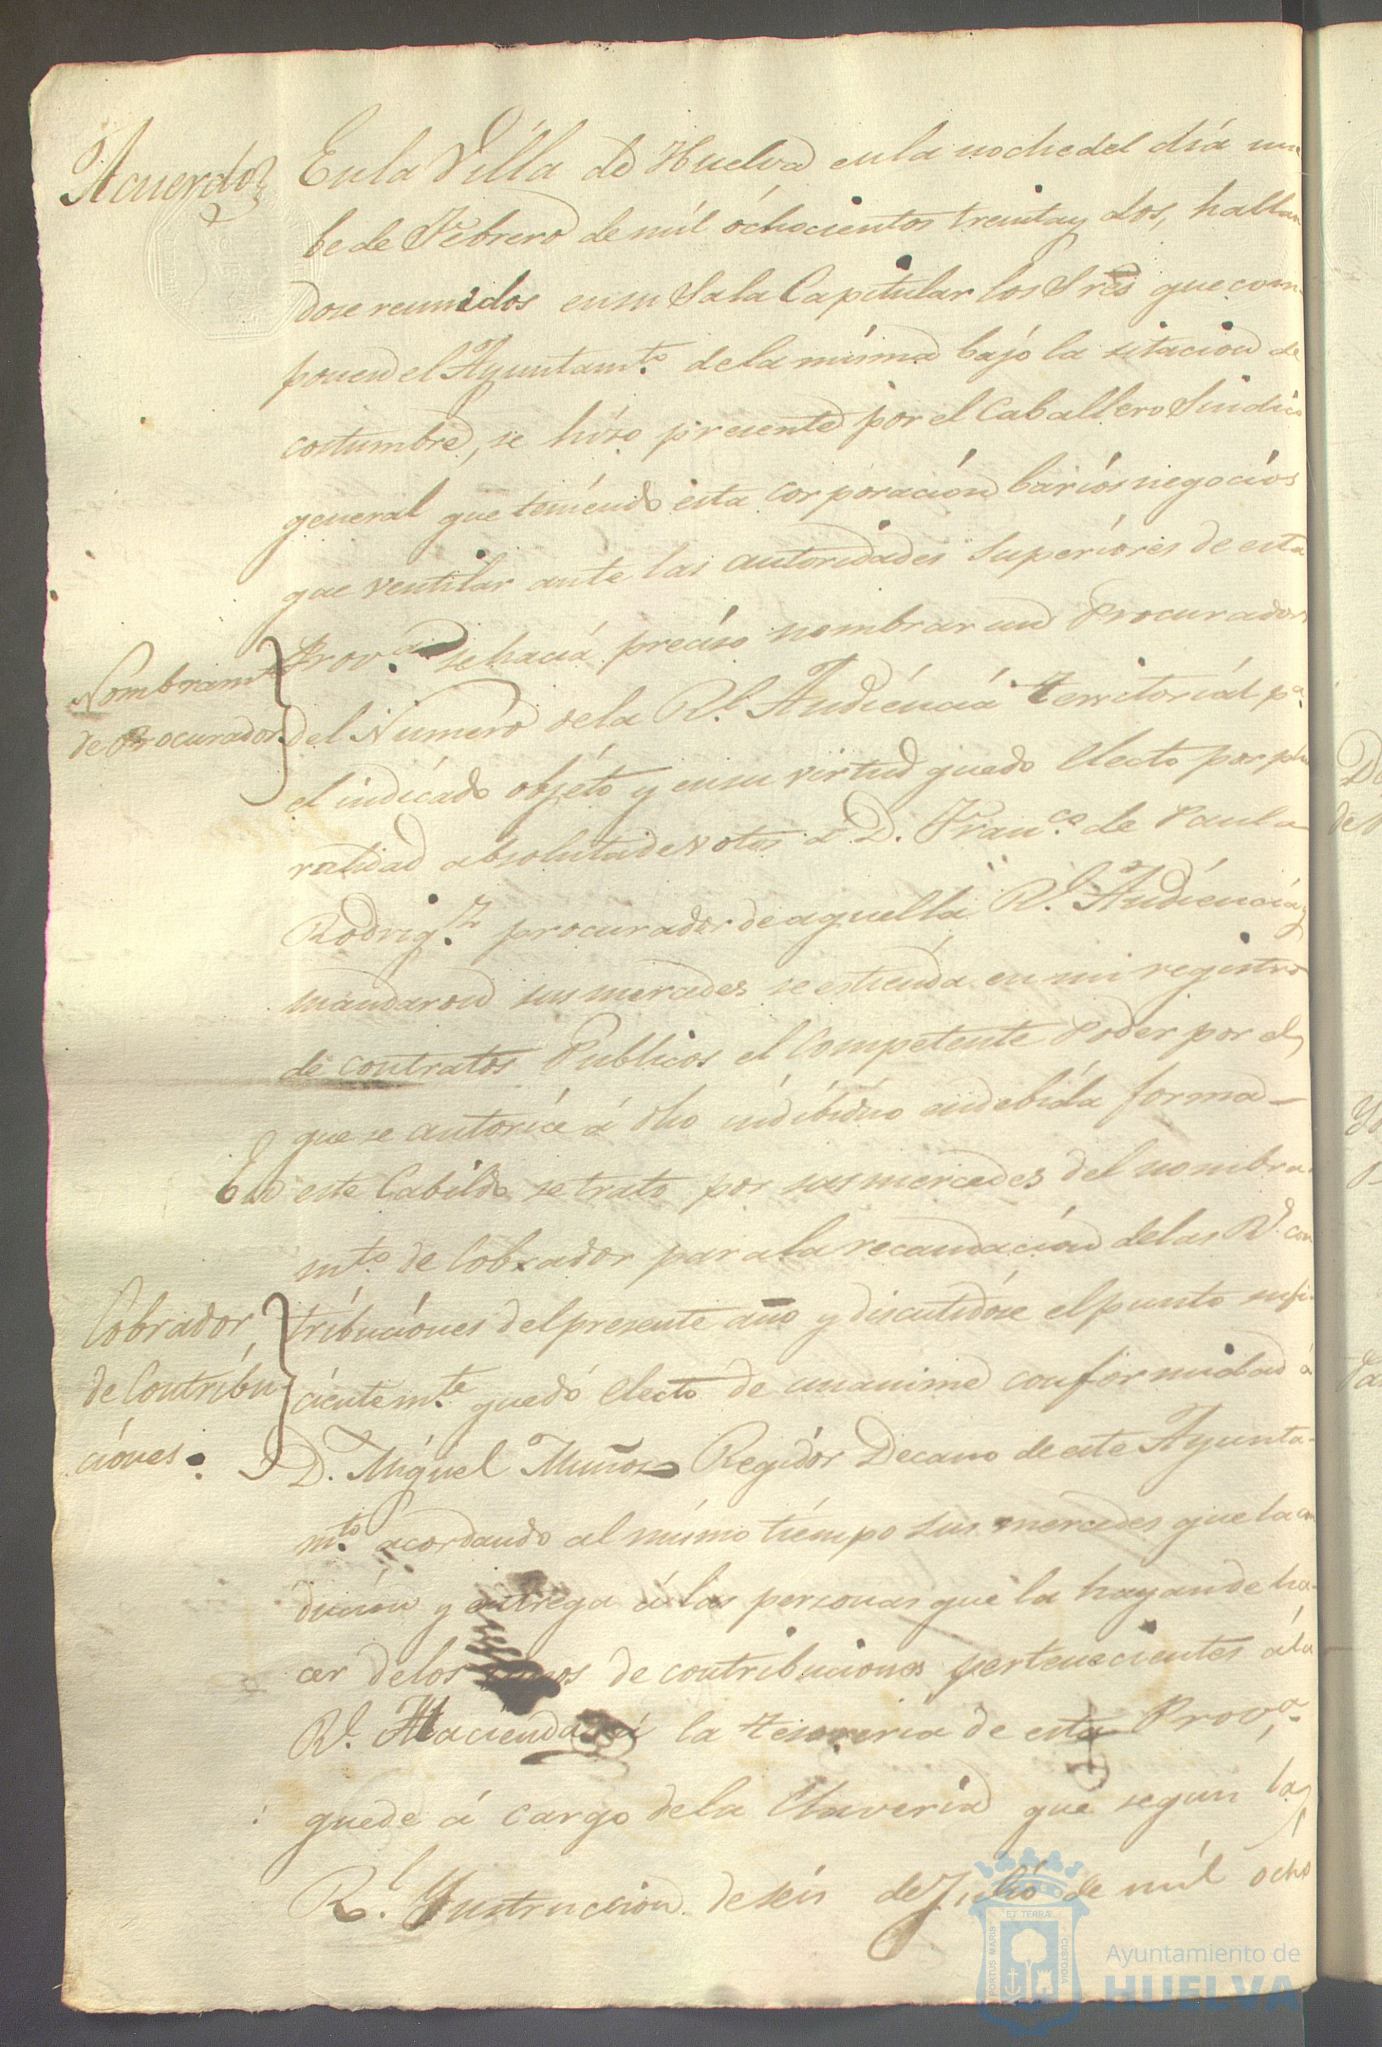 Acuerdo
En la Villa de Huelva en la noche del dia nue
be de Febrero de mil óchocientos treinta y dos, hallan
dose reunidos en su Sala Capitular los Sres que com-
ponen el Ayuntamto. de la misma bajo la sitacion de
costumbre, se hizo presente por el Caballero Sindico
general que teniendo esta corporación barios negocios
que ventilar ante las autoridades superiores de esta
Nombramto
de Procurador
Prova. se hacia preciso nombrar un Procurador
del Numero de la Rl. Audiencia territorial pa.
el indicado objéto y en su virtud quedo electo por plu
ralidad absoluta de votos a D. Franco. de Paula
Rodrigz. procurador de aquella Rl. Audiencia y
mandaron sus mercedes se estienda en mi registro
de contratos Publicos el Competente Poder por el
que se autorice á dho indibiduo en debida forma—
En este Cabildo se trato por sus mercedes del nombra-
mto. de Cobrador para la recaudación de las Rs. con
Cobrador
de Contribu
ciones.
tribuciónes del presente año y discutidose el punto sufi-
cientemte. quedó electo de unanime conformidad á
D. Miguel Muñoz Regidór Decano de este Ayunta-
mto. acordando al mismo tiempo sus mercedes que la con
ducion y entrega á las personas que la hayan de ha-
cer de los de contribuciones pertenecientes á la
Rl. Hacienda á la tesoreria de esta Prova.
quede á cargo de la Claveria que segun la
Rl. Instruccion de seis de Julio de mil ocho
PORTUS MARIS
ET TERRÆ
CUSTODIA
Ayuntamiento de
HUELVA